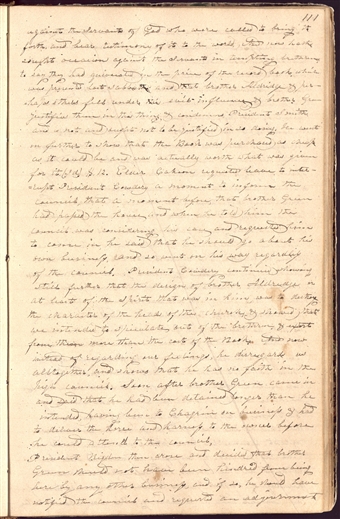 111
against the servants of God who were called to bring it
forth and bear testimony of it to the world. That now he
sought occasion against the servants in
to say they had speculated in the price of the book which
was presented last Sabbath and that brother Aldridge & per-
haps others fell under his influence, & brother Green
justifies them in the thing & condemns President Smith
and is not, and ought not to be justified in so doing. He went
on further to show that the Book was purchased as cheap
as it could be and was actually worth what was given
for it. Elder Oaken requested leave to inter-
rupt President Cowdery a moment to inform the
council, that a moment before, that brother Green
had passed the house, and when he told him the
council was considering his case, and requested him
to come in he said that he should go about his
own business, and so went on his way regardless
of the council. President Cowdery continued showing
still further that the design of brother Aldridge or
at least of the spirits that was in him, was to destroy
the character of the heads of the church, & showed that
we intended to speculate out of the brethren & extort
from them more than the cost of the Book. That now
instead of regarding our feelings, he disregards us
altogether, and shows that he has no faith in the
high council. Soon after brother Green came in
and said that he had been detained longer than he
intended, having been to Chagrin on business & had
to deliver the horse and harness to the owner before
he could attend to this council.
President Rigdon then arose and decided that brother
Green should not have been hindred from being
here by any other business, and if so, he should have
notified the council and requested an adjournment